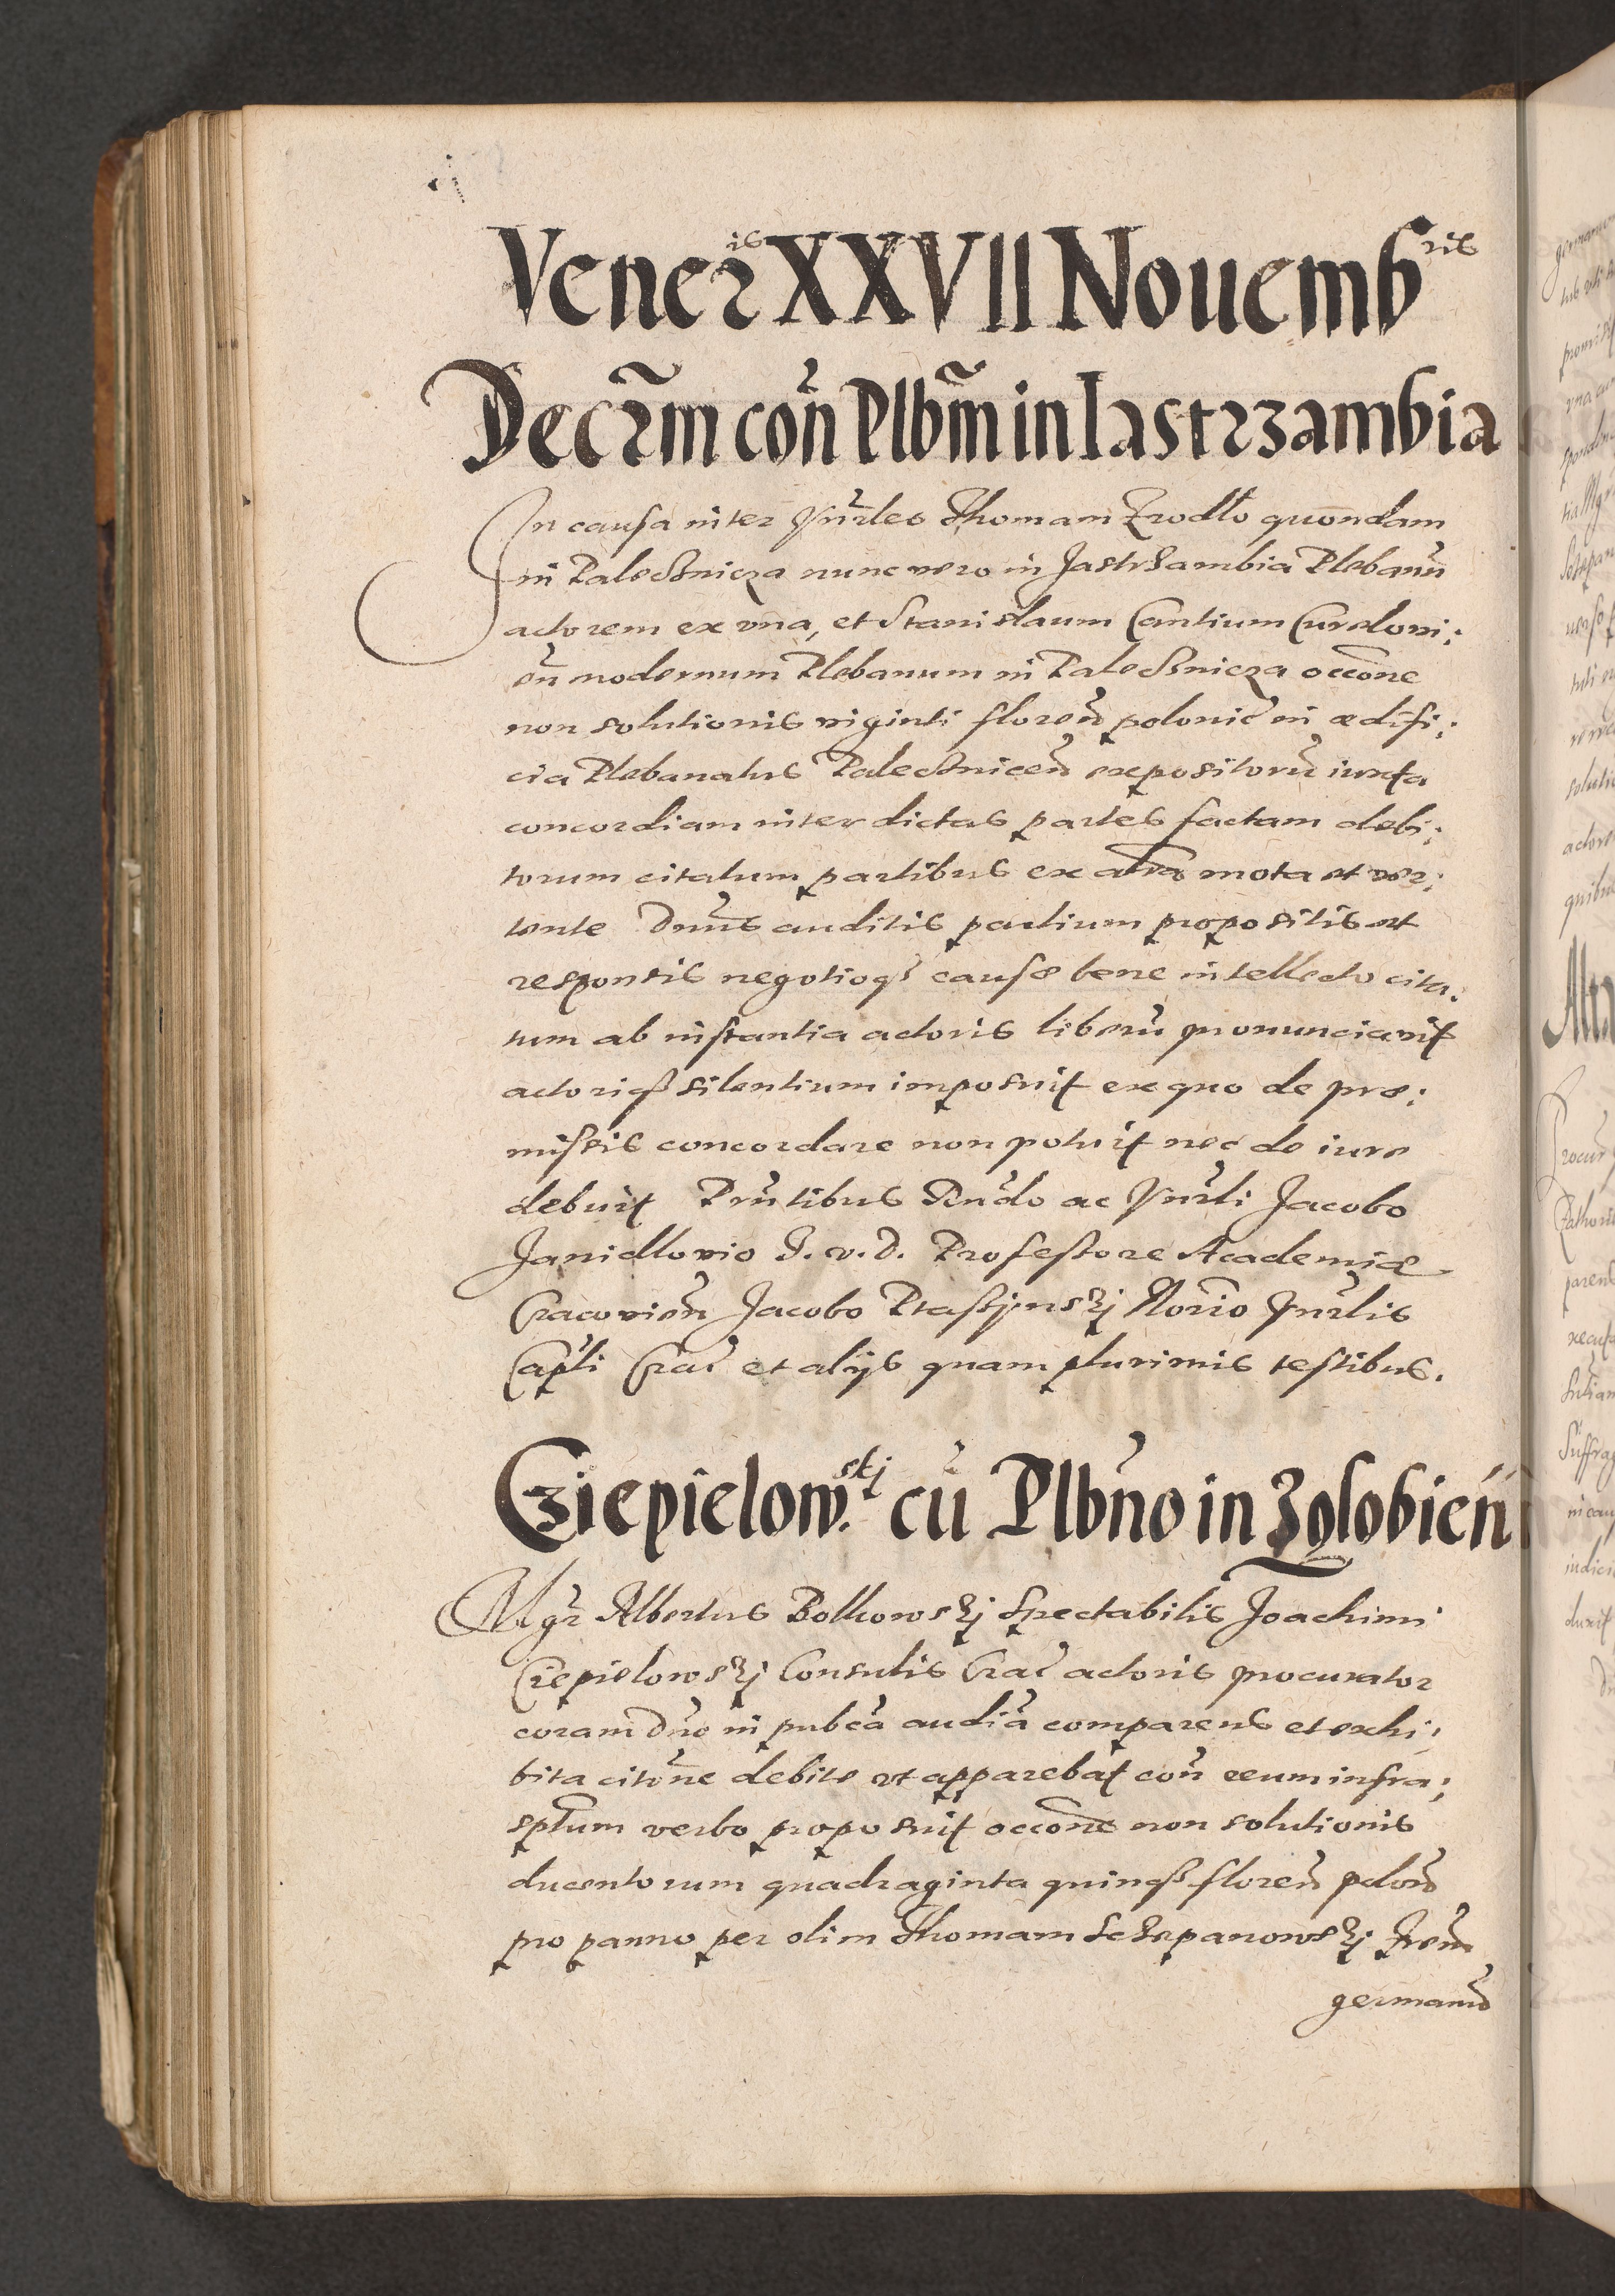 Veneris XXVII Nouembris
Decrm con Plbm in Iastrzambia
In causa inter Vnrles Thomam Zrodło quondam
in Paleßnicza nunc vero in Jastrzambia Plebanu
actorem ex vna, et Stanislaum Cantium Cureloui:
en modernum Plebanum in Paleßnicza occone
non solutionis viginti floren polonic in ædifi:
cia Plebanatus Paleßnicen expositoru iuxta
concordiam inter dictas partes factam debi:
torum citatum partibus ex altra mota et ver:
tente Dnus auditis partium propositis et
responsis negotioq causæ bene intellecto cita:
tum ab instantia actoris liberu pronunciavit
actoriq silentium imposuit ex quo de præ:
missis concordare non potuit nec de iure
debuit Prntibus Rndo ac Vnrli Jacobo
Janidlovio J. v. D. Professore Academiæ
Cracovien Jacobo Ptaßynskj Norio Vnrlis
Capli Crac et alijs quam plurimis testibus.
Cziepielow.skj cu Plbno in Zglobien
Mgr Albertus Bolkowskj Spectabilis Joachimi
Ciepielowskj Consulis Crac actoris procurator
coram Dno in pubca audia comparens et exhi:
bita citone debite vt apparebat con reum infra:
sptum verbo proposuit occone non solutionis
ducentorum quadraginta quinq floren polon
pro panno per olim Thomam Sczepanowskj frem
germanu